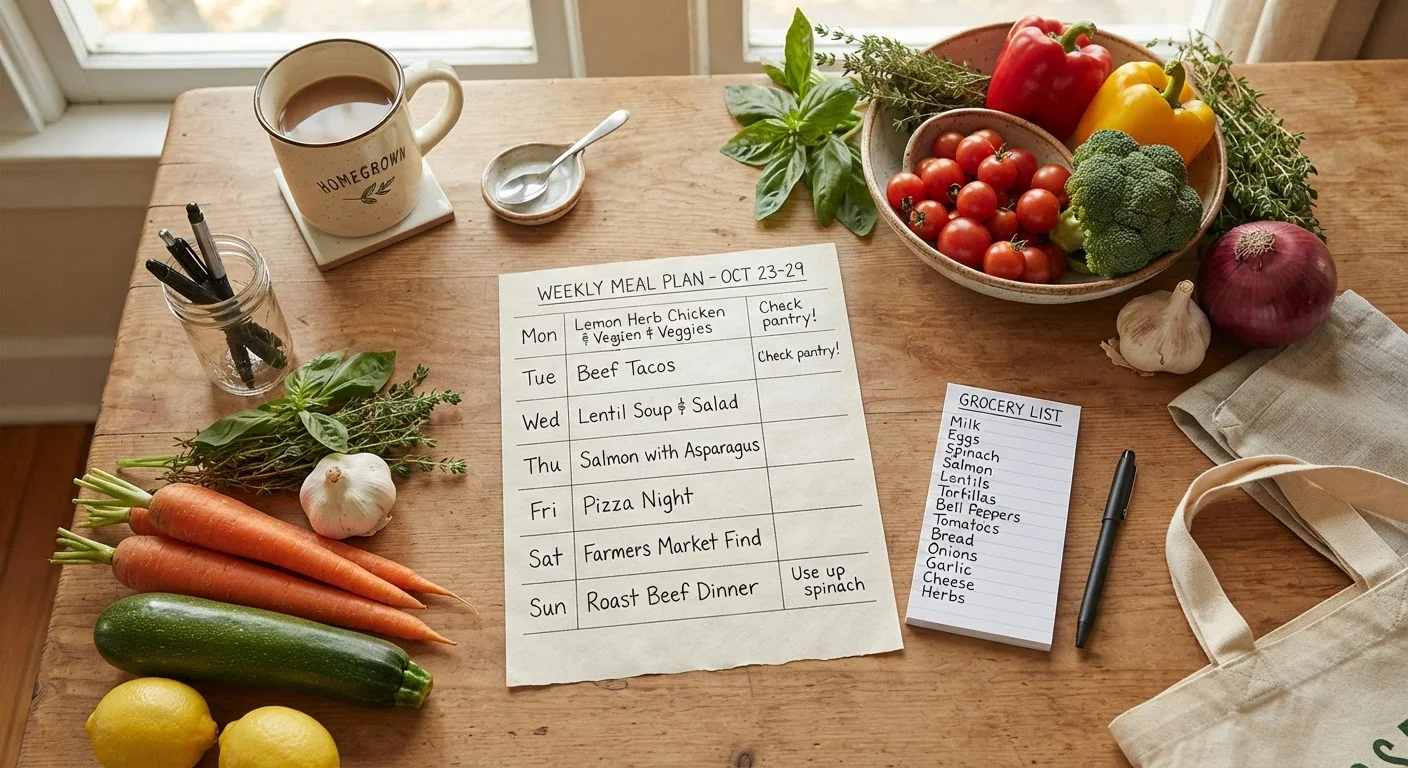 HOMEGROWN
WEEKLY MEAL PLAN - OCT 23-29
Mon Lemon Herb Chicken Check
& Vegien & Veggies pantry!
Tue Beef Tacos Check pantry!
Wed Lentil Soup & Salad
Thu Salmon with Asparagus
Fri Pizza Night
Sat Farmers Market Find
Sun Roast Beef Dinner Use up
spinach
GROCERY LIST
Milk
Eggs
Spinach
Salmon
Lentils
Torfillas
Bell Peppers
Tomatocs
Bread
Onions
Garlic
Cheese
Herbs